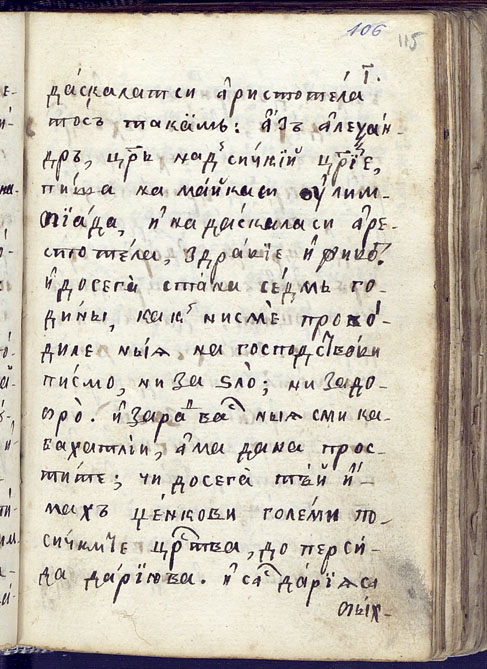 106
115
г҃.
да́скалатси а҆ристоте́ла
тосъ такѡ́мь: а҆́зъ алеѯа́н-
дръ, цр҃ь над̾ си́чкїй цр҃їе,
пи́ша на ма́йкаси ѹ҆лим-
пїа́да, и҆ на да́скаласи а҆ре-
стоте́ла, здра́вїе и҆
и҆ досега̀ ста́на се́дмь го-
ди́ны, как̾ нисмѐ прово́-
диле ны́ѧ на господство́ви
писмо, ни за ѕло̀; ни за до-
бро̀. и҆ зара́ва ны́ѧ сми ка-
бахатлїи, а҆ма да на прос-
ти́те; чи досега̀ тѣ́й и҆́-
махъ це́нкови голе́ми по-
си́чките црⷭ҇тва, до перси́-
да да́рїюва. и҆ са да́рїѧса